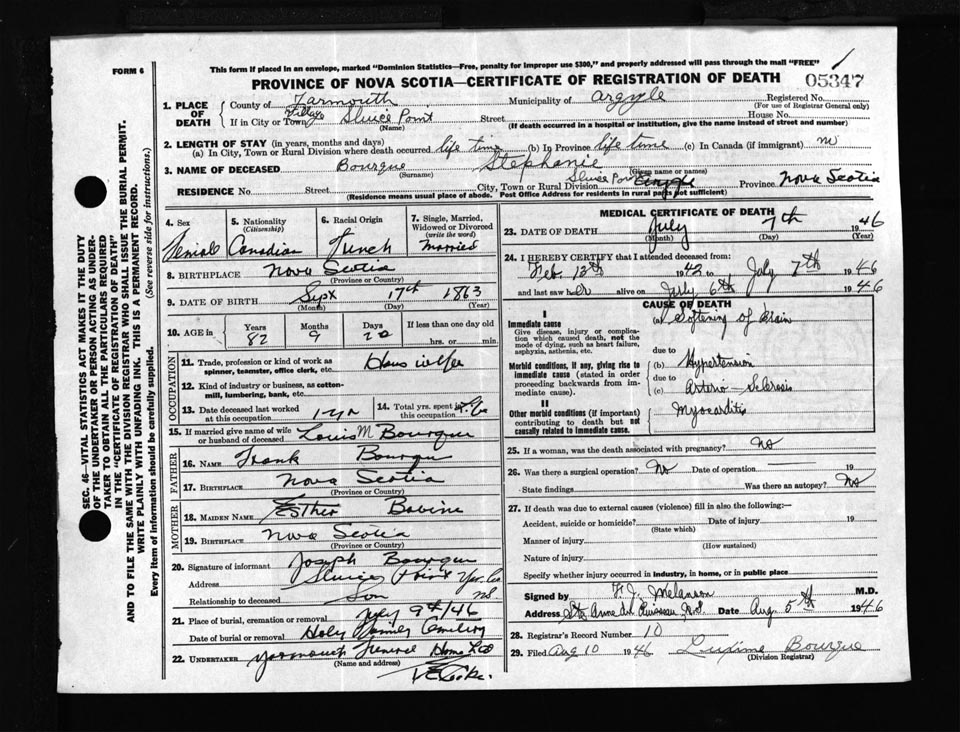 FORM 6
This form if placed in an envelope, marked "Dominion Statistics—Free, penalty for improper use $300," and properly addressed will pass through the mail "FREE"
PROVINCE OF NOVA SCOTIA—CERTIFICATE OF REGISTRATION OF DEATH
05347
1. PLACE OF DEATH
County of Yarmouth Municipality of Argyle Registered No.
(For use of Registrar General only)
If in City or Town Village Sluice Point Street House No.
(Name) (If death occurred in a hospital or institution, give the name instead of street and number)
2. LENGTH OF STAY (in years, months and days)
(a) In City, Town or Rural Division where death occurred life time (b) In Province life time (c) In Canada (if immigrant)
3. NAME OF DECEASED Bourque Stephanie
(Surname) (Given name or names)
RESIDENCE No. Street City, Town or Rural Division Sluice Point Argyle Province Nova Scotia
(Residence means usual place of abode. Post Office Address for residents in rural parts not sufficient)
4. Sex
Femal
5. Nationality (Citizenship)
Canadian
6. Racial Origin
French
7. Single, Married, Widowed or Divorced (write the word)
Married
8. BIRTHPLACE Nova Scotia
(Province or Country)
9. DATE OF BIRTH Sept 17th 1863
(Month) (Day) (Year)
10. AGE in Years Months Days If less than one day old
82 9 20 hrs. or min.
OCCUPATION
11. Trade, profession or kind of work as spinner, teamster, office clerk, etc. Hous wife
12. Kind of industry or business, as cotton-mill, lumbering, bank, etc.
13. Date deceased last worked at this occupation 1 yr
14. Total yrs. spent in this occupation
15. If married give name of wife or husband of deceased Louis M Bourque
FATHER
16. NAME Frank Bourqu
17. BIRTHPLACE Nova Scotia
(Province or Country)
MOTHER
18. MAIDEN NAME Esther Babine
19. BIRTHPLACE Nova Scotia
(Province or Country)
20. Signature of informant Joseph Bourque
Address Sluice Point Yar. Co NS
Relationship to deceased Son
21. Place of burial, cremation or removal July 9th/46
Date of burial or removal Holy Family Cemetery
22. UNDERTAKER Yarmouth Funeral Home Ltd
(Name and address)
MEDICAL CERTIFICATE OF DEATH
23. DATE OF DEATH July 7th 1946
(Month) (Day) (Year)
24. I HEREBY CERTIFY that I attended deceased from:
Feb. 13th 1942 to July 7th 1946
and last saw her alive on July 6th 1946
CAUSE OF DEATH
I
Immediate cause
Give disease, injury or complication which caused death, not the mode of dying, such as heart failure, asphyxia, asthenia, etc.
(a) Softening of Brain
due to
Morbid conditions, if any, giving rise to immediate cause (stated in order proceeding backwards from immediate cause).
(b) Hypertension
due to
(c) Arterio-Sclerosis
II
Other morbid conditions (if important) contributing to death but not causally related to immediate cause.
Myocarditis
25. If a woman, was the death associated with pregnancy? No
26. Was there a surgical operation? No Date of operation 19
State findings Was there an autopsy? No
27. If death was due to external causes (violence) fill in also the following:—
Accident, suicide or homicide? Date of injury 19
(State which)
Manner of injury
(How sustained)
Nature of injury
Specify whether injury occurred in industry, in home, or in public place
Signed by F. J. Melanson M.D.
Address Ste Anne du Ruisseau, N.S. Date Aug. 5th 1946
28. Registrar's Record Number 10
29. Filed Aug 10 1946 Bourque
(Division Registrar)
SEC. 46—VITAL STATISTICS ACT MAKES IT THE DUTY OF THE UNDERTAKER OR PERSON ACTING AS UNDERTAKER TO OBTAIN ALL THE PARTICULARS REQUIRED IN THE "CERTIFICATE OF REGISTRATION OF DEATH" AND TO FILE THE SAME WITH THE DIVISION REGISTRAR WHO SHALL ISSUE THE BURIAL PERMIT.
WRITE PLAINLY WITH UNFADING INK. THIS IS A PERMANENT RECORD.
Every item of information should be carefully supplied. (See reverse side for instructions.)